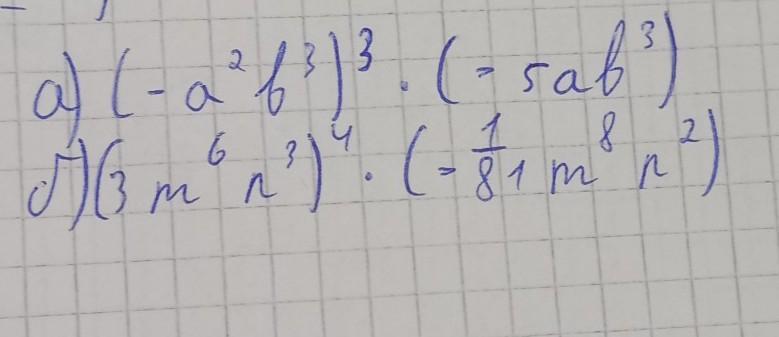 а) (-a²b³)³ · (-5ab³)
б) (3m⁶n³)⁴ · (-1/81 m⁸n²)